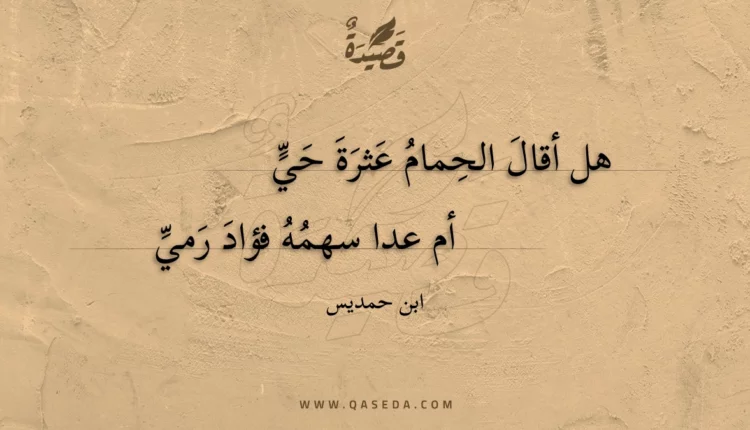 قَصِيْدَةٌ
هل أقالَ الحِمامُ عَثرَةَ حَيٍّ
أم عدا سهمُهُ فؤادَ رَميِّ
ابن حمديس
WWW.QASEDA.COM